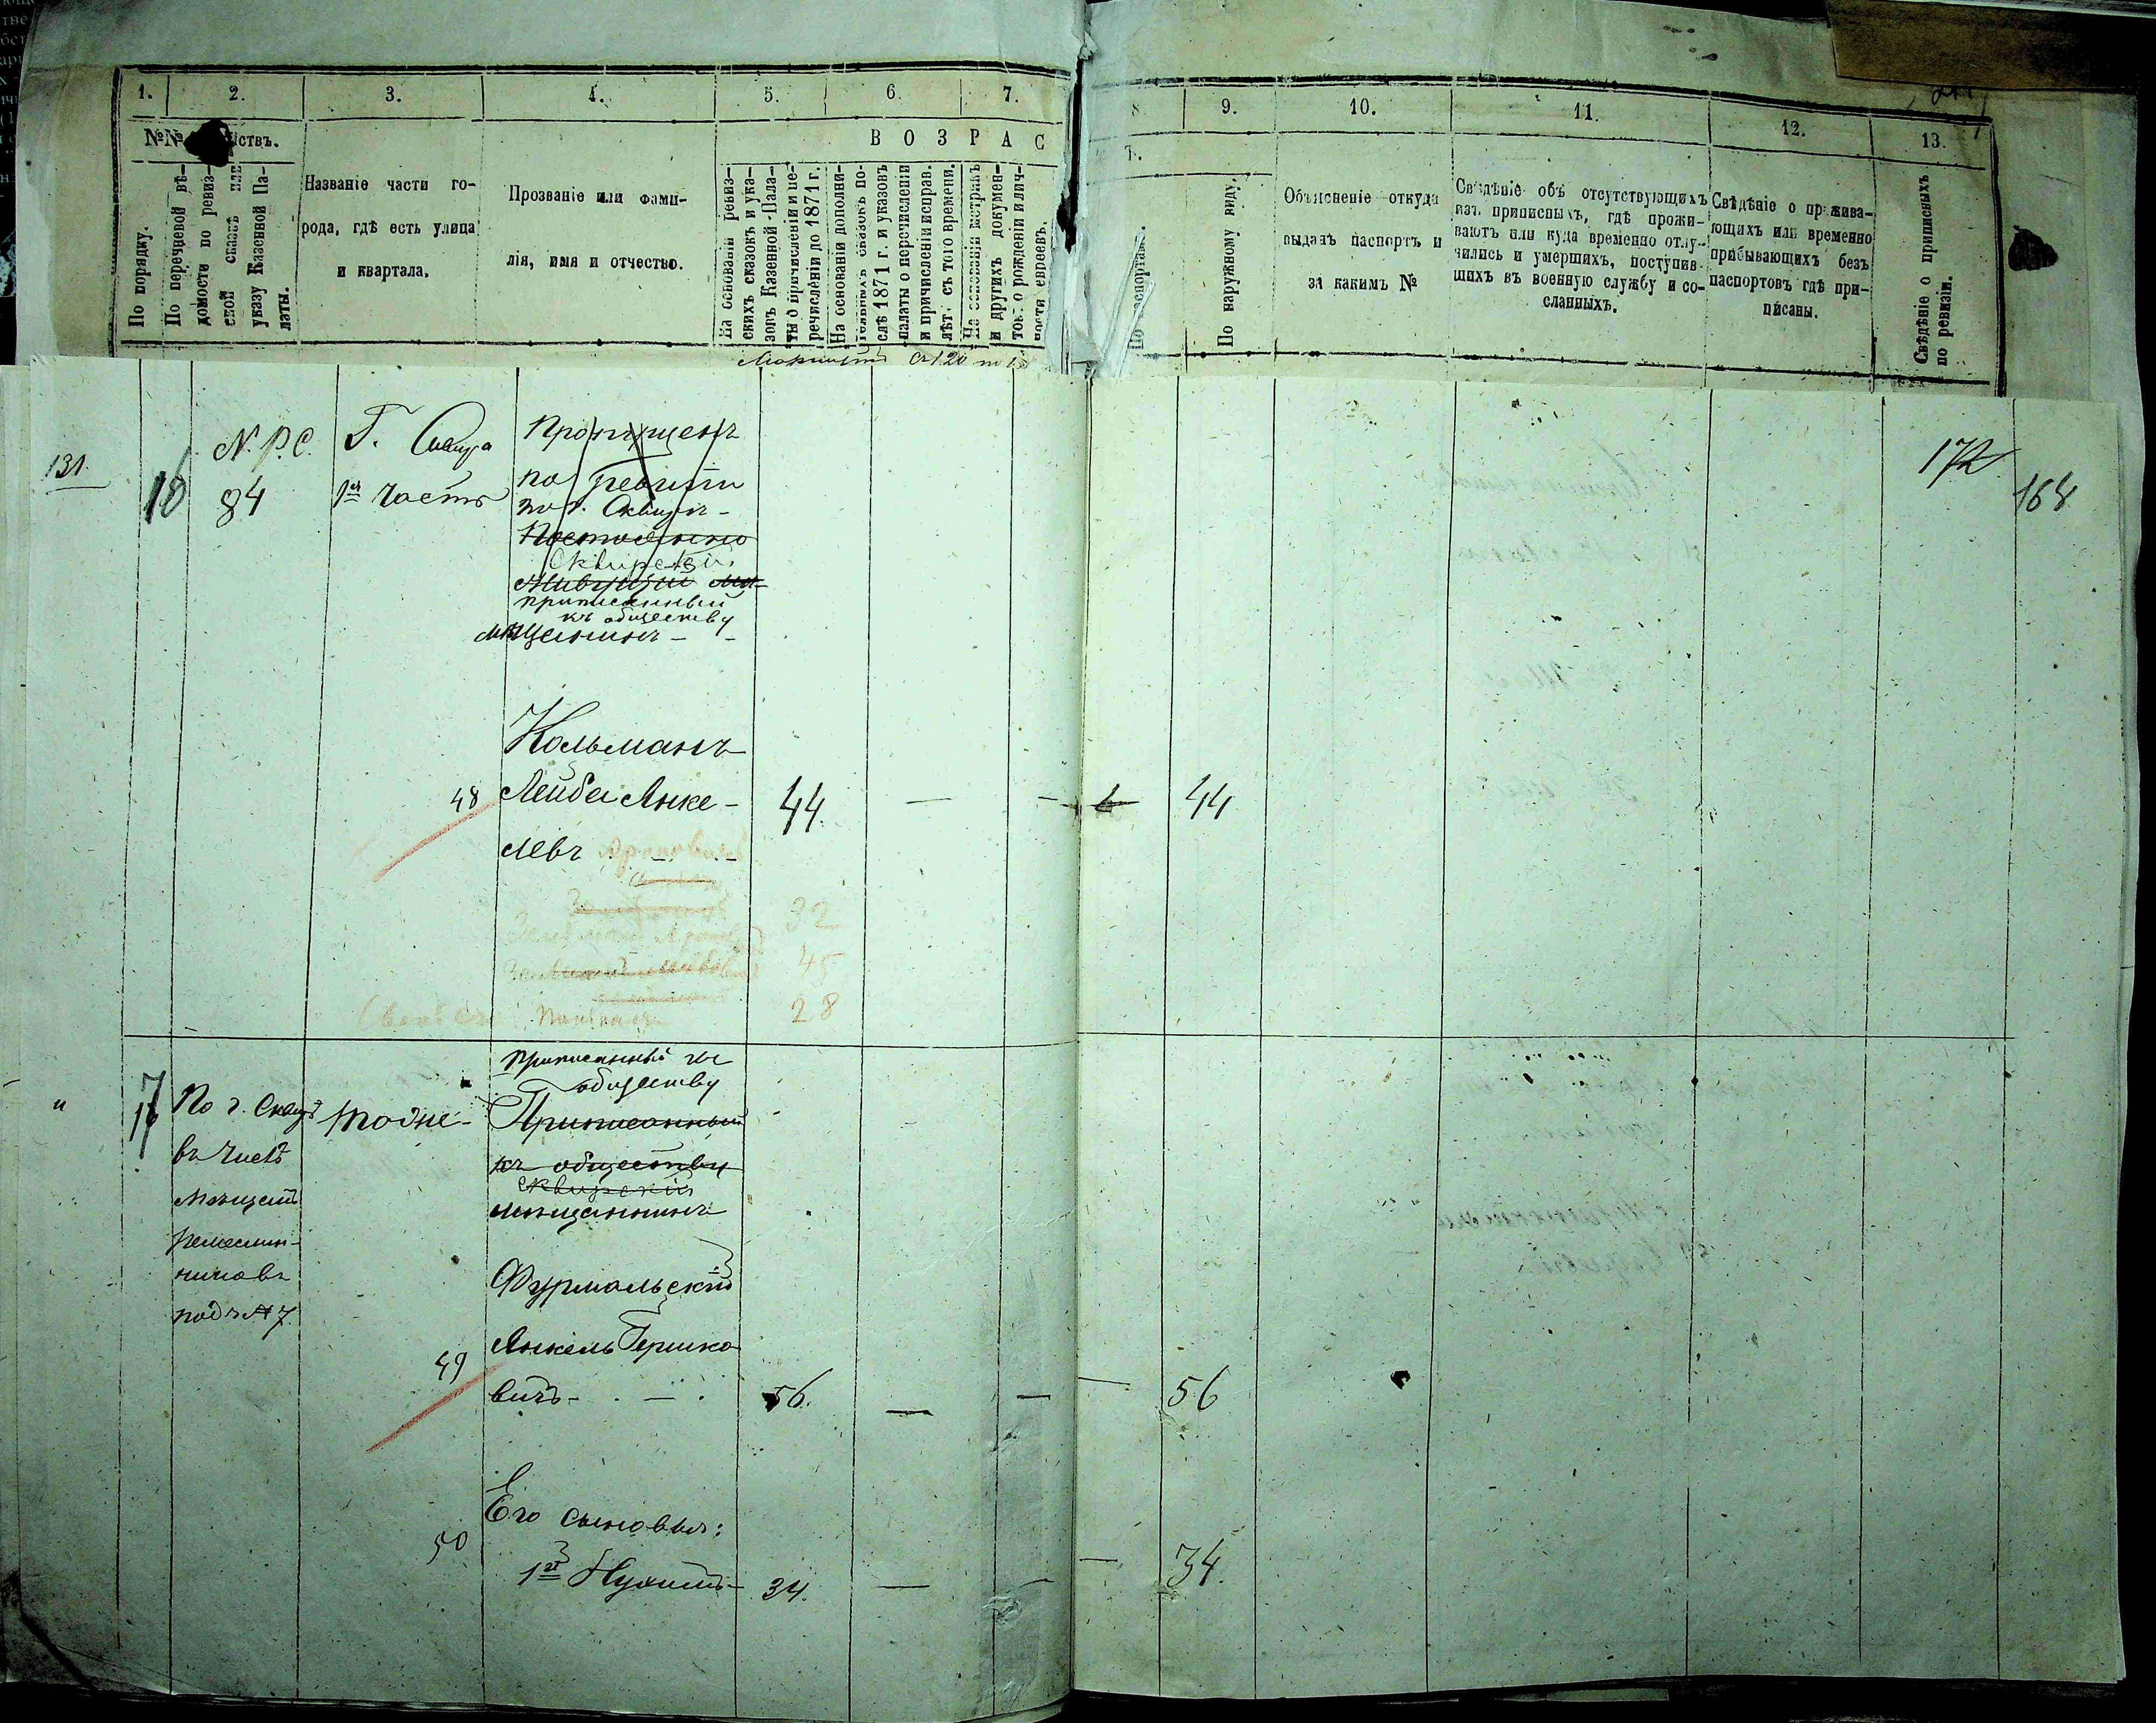 1.
2.
3.
4.
5.
6.
7.
8.
9.
10.
11.
12.
13.
№№
йствъ.
В О З Р А С
Т.
По порядку.
По перечневой вѣ-
домости по ревиз-
ской сказкѣ или
указу Казенной Па-
латы.
Названіе части го-
рода, гдѣ есть улица
и квартала.
Прозваніе или фами-
лія, имя и отчество.
На основаніи ревиз-
скихъ сказокъ и ука-
зовъ Казенной Пала-
ты о причисленіи и пе-
речисленіи до 1871 г.
На основаніи дополни-
тельныхъ сказокъ по-
слѣ 1871 г. и указовъ
палаты о перечисленіи
и причисленіи исправ.
лѣт. съ того времени.
На основаніи метрикъ
и другихъ докумен-
тов. о рожденіи и лич-
ности евреевъ.
По паспортамъ.
По наружному виду.
Объясненіе откуда
выданъ паспортъ и
за какимъ №
Свѣдѣніе объ отсутствующихъ
изъ приписныхъ, гдѣ прожи-
ваютъ или куда временно отлу-
чились и умершихъ, поступив-
шихъ въ военную службу и со-
сланныхъ.
Свѣдѣніе о прожива-
ющихъ или временно
прибывающихъ безъ
паспортовъ гдѣ при-
писаны.
Свѣдѣніе о приписныхъ
по ревизіи.
131.
16
N. Р.С.
84
Г. Сквира
1я часть
Пропущенъ
по ревизіи
по г. Сквирѣ -
Постоянно
Сквирскій
Живущій
приписанный
къ обществу
мѣщанинъ - -
172
168
Кольманъ
48 Лейба Янке-
левъ
44. — — 44
32
45
28
"
17
По г. Сквирѣ
въ числѣ
мѣщанъ
ремеслен-
никовъ
подъ № 7.
тоже -
приписанный къ
обществу
Приписанный
къ обществу
сквирскій
мѣщанинъ
Фурмальскій
Янкель Гершко
49
вичъ - 56. — — — 56
Его сыновья:
50
1й Нухимъ - 34. — — — 34.